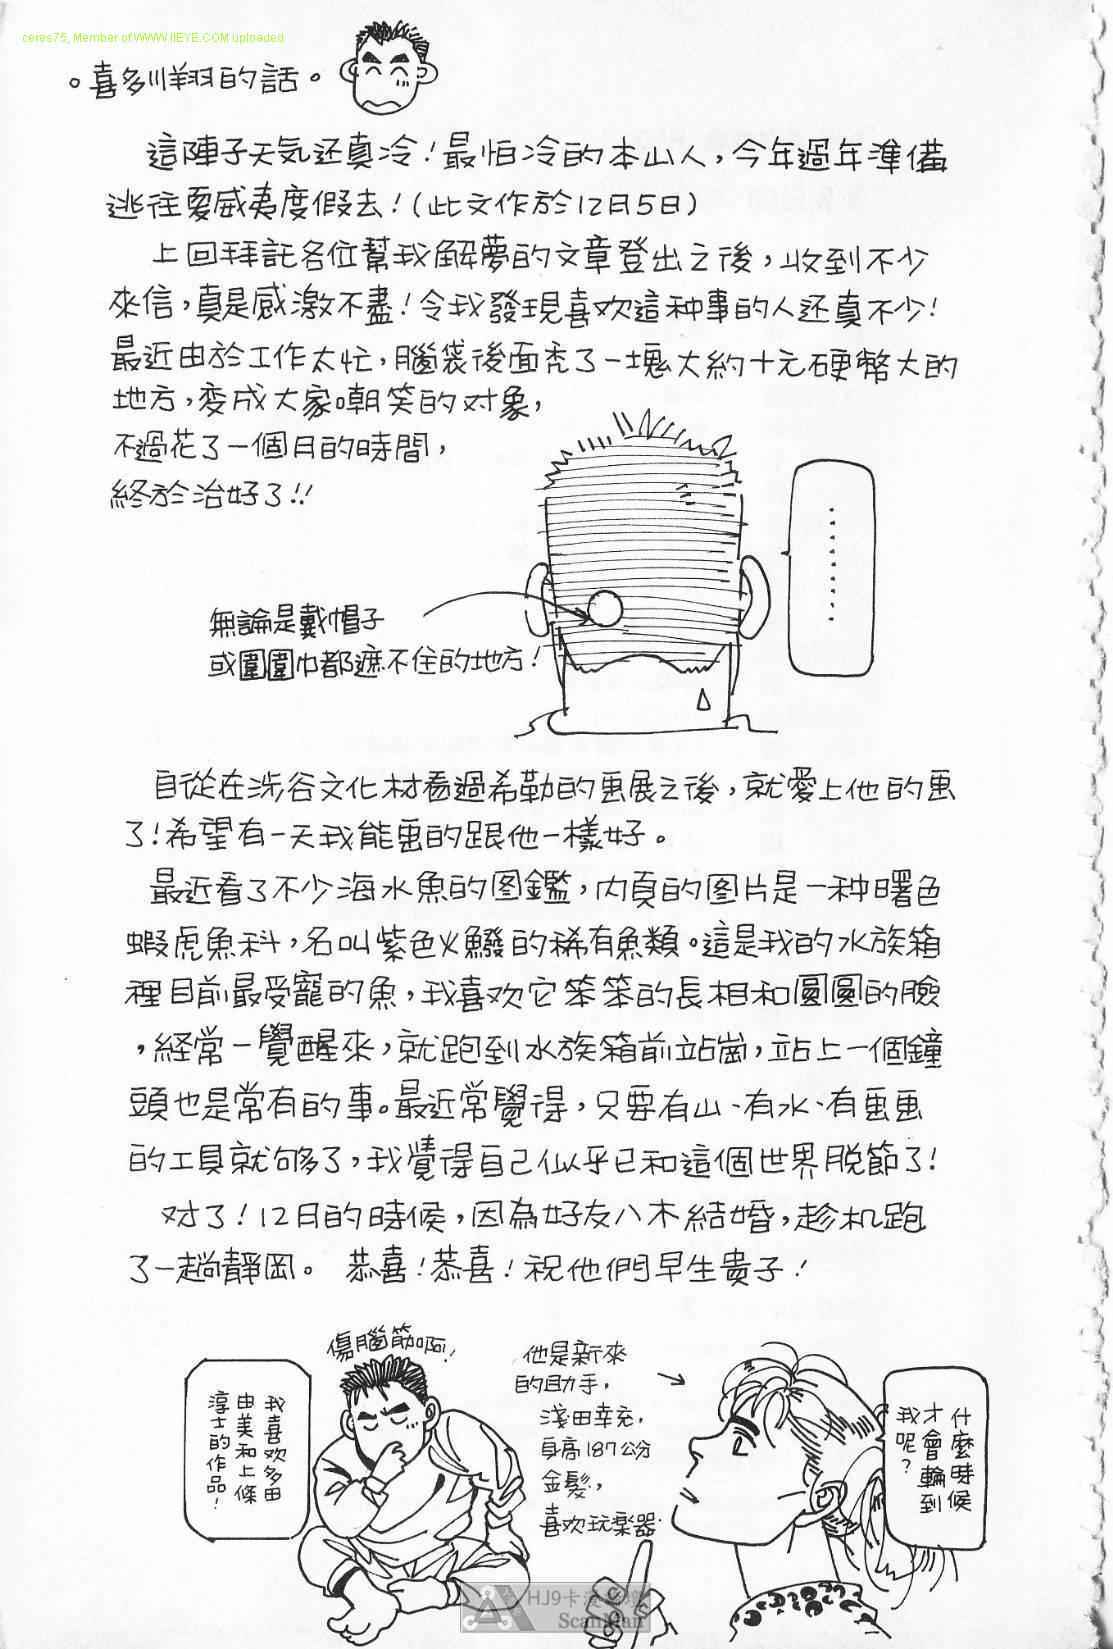 ceres75, Member of WWW.IIEYE.COM uploaded
。喜多川翔的話。
這陣子天気还真冷！最怕冷的本山人，今年過年準備
逃往夏威夷度假去！(此文作於12月5日)
上回拜託各位幫我解夢的文章登出之後，收到不少
來信，真是感激不盡！令我發現喜欢這种事的人还真不少！
最近由於工作太忙，腦袋後面秃了一塊大約十元硬幣大的
地方，变成大家嘲笑的对象，
不過花了一個月的時間，
終於治好了!!
無論是戴帽子
或圍圍巾都遮不住的地方！
自從在涉谷文化村看過希勒的畫展之後，就愛上他的畫
了！希望有一天我能畫的跟他一樣好。
最近看了不少海水魚的图鑑，内頁的图片是一种曙色
蝦虎魚科，名叫紫色火鱍的稀有魚類。這是我的水族箱
裡目前最受寵的魚，我喜欢它笨笨的長相和圓圓的臉
，経常一覺醒來，就跑到水族箱前站崗，站上一個鐘
頭也是常有的事。最近常覺得，只要有山、有水、有畫畫
的工具就够了，我覺得自己似乎已和這個世界脱節了！
对了！12月的時候，因為好友八木結婚，趁机跑
了一趟靜岡。 恭喜！恭喜！祝他們早生貴子！
傷腦筋啊！
我喜欢多田
由美和上條
淳士的作品！
他是新來
的助手，
淺田幸充，
身高187公分
金髮，
喜欢玩楽器
什麼時候
才會輪到
我呢？
HJ9卡漫
ScanMan